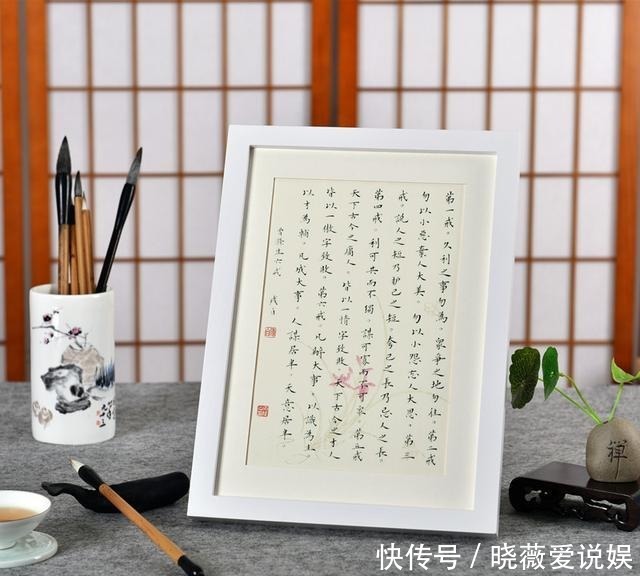 第一戒。久利之事勿為。眾爭之地勿往。第二戒
勿以小惡棄人大美。勿以小怨忘人大恩。第三
戒。說人之短乃護己之短。夸己之長乃忌人之長。
第四戒。利可共而不獨。謀可寡而不可眾。第五戒
天下古今之庸人。皆以一惰字致敗。天下古今之才人
皆以一傲字致敗。第六戒。凡辦大事。以識為主。
以才為輔。凡成大事。人謀居半。天意居半。
曾滌生六戒
禅
快传号／晓薇爱说娱